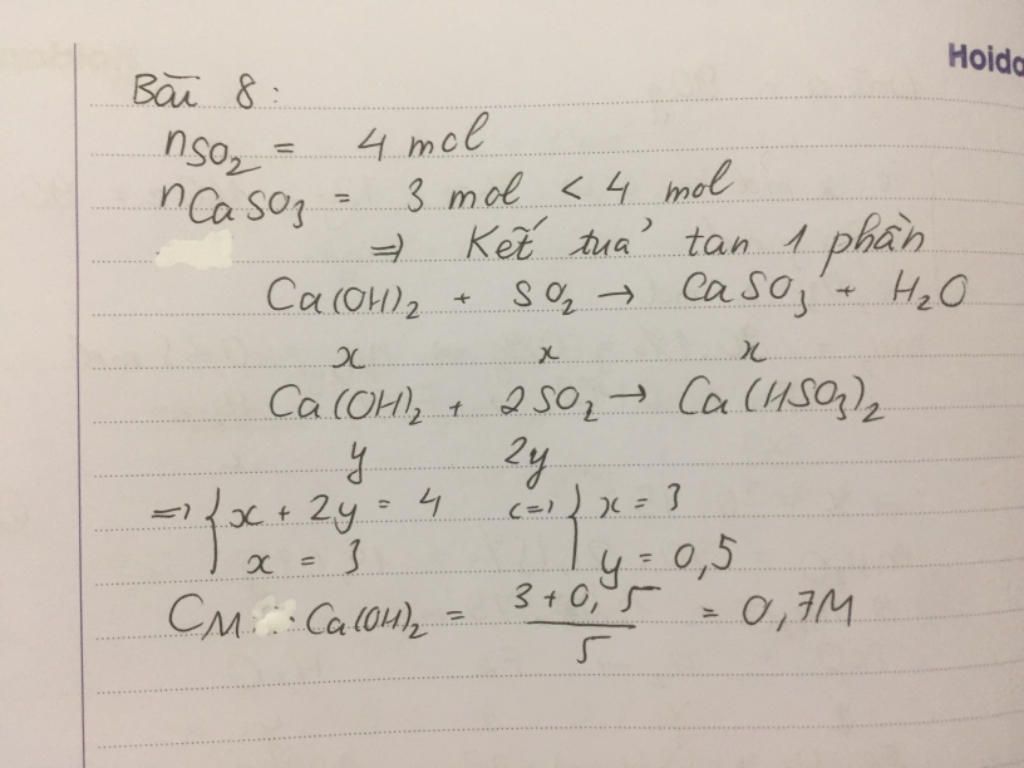 Hoido
Bài 8:
nSO₂ = 4 mol
nCaSO₃ = 3 mol < 4 mol
⇒ Kết tủa tan 1 phần
Ca(OH)₂ + SO₂ → CaSO₃ + H₂O
x x x
Ca(OH)₂ + 2SO₂ → Ca(HSO₃)₂
y 2y
⇒ { x + 2y = 4 <=> { x = 3
x = 3 y = 0,5
CM Ca(OH)₂ = (3 + 0,5)/5 = 0,7M